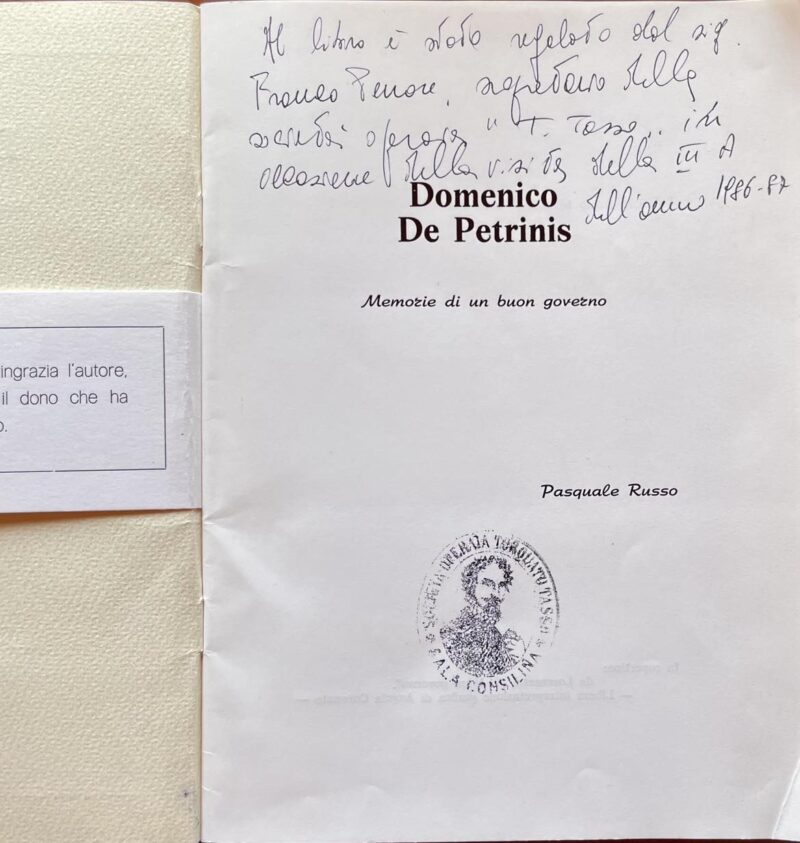 Al libro è stato regalato dal sig.
Franco Penore, segretario della
società operaia "T. Tasso" in
occasione della visita della III A
dell'anno 1986-87
Domenico
De Petrinis
Memorie di un buon governo
ingrazia l'autore,
il dono che ha
o.
Pasquale Russo
SOCIETÀ OPERAIA TORQUATO TASSO
SALA CONSILINA
In copertina: